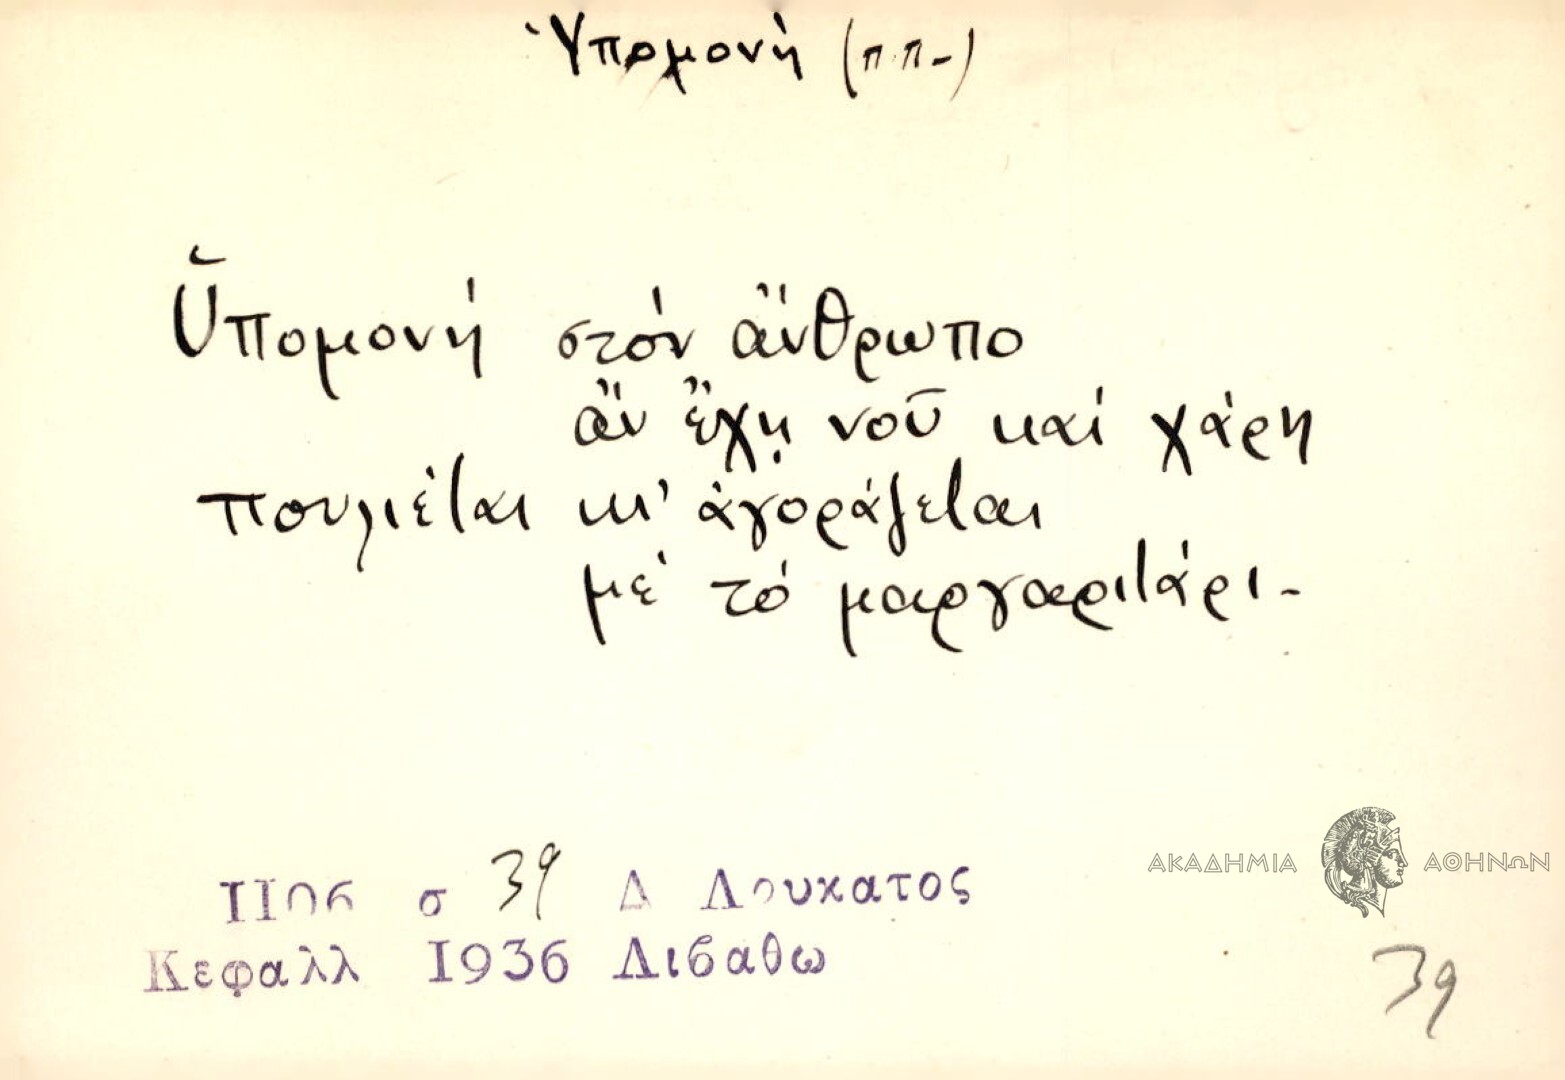 Ὑπομονή (π.π-)
Ὑπομονή στόν ἄνθρωπο
ἄν ἔχῃ νοῦ καί χάρη
πουλιέται κι' ἀγοράζεται
μέ τό μαργαριτάρι-
1106 σ 39 Δ Λουκατος
Κεφαλλ 1936 Λιβαθω
ΑΚΑΔΗΜΙΑ ΑΘΗΝΩΝ
39